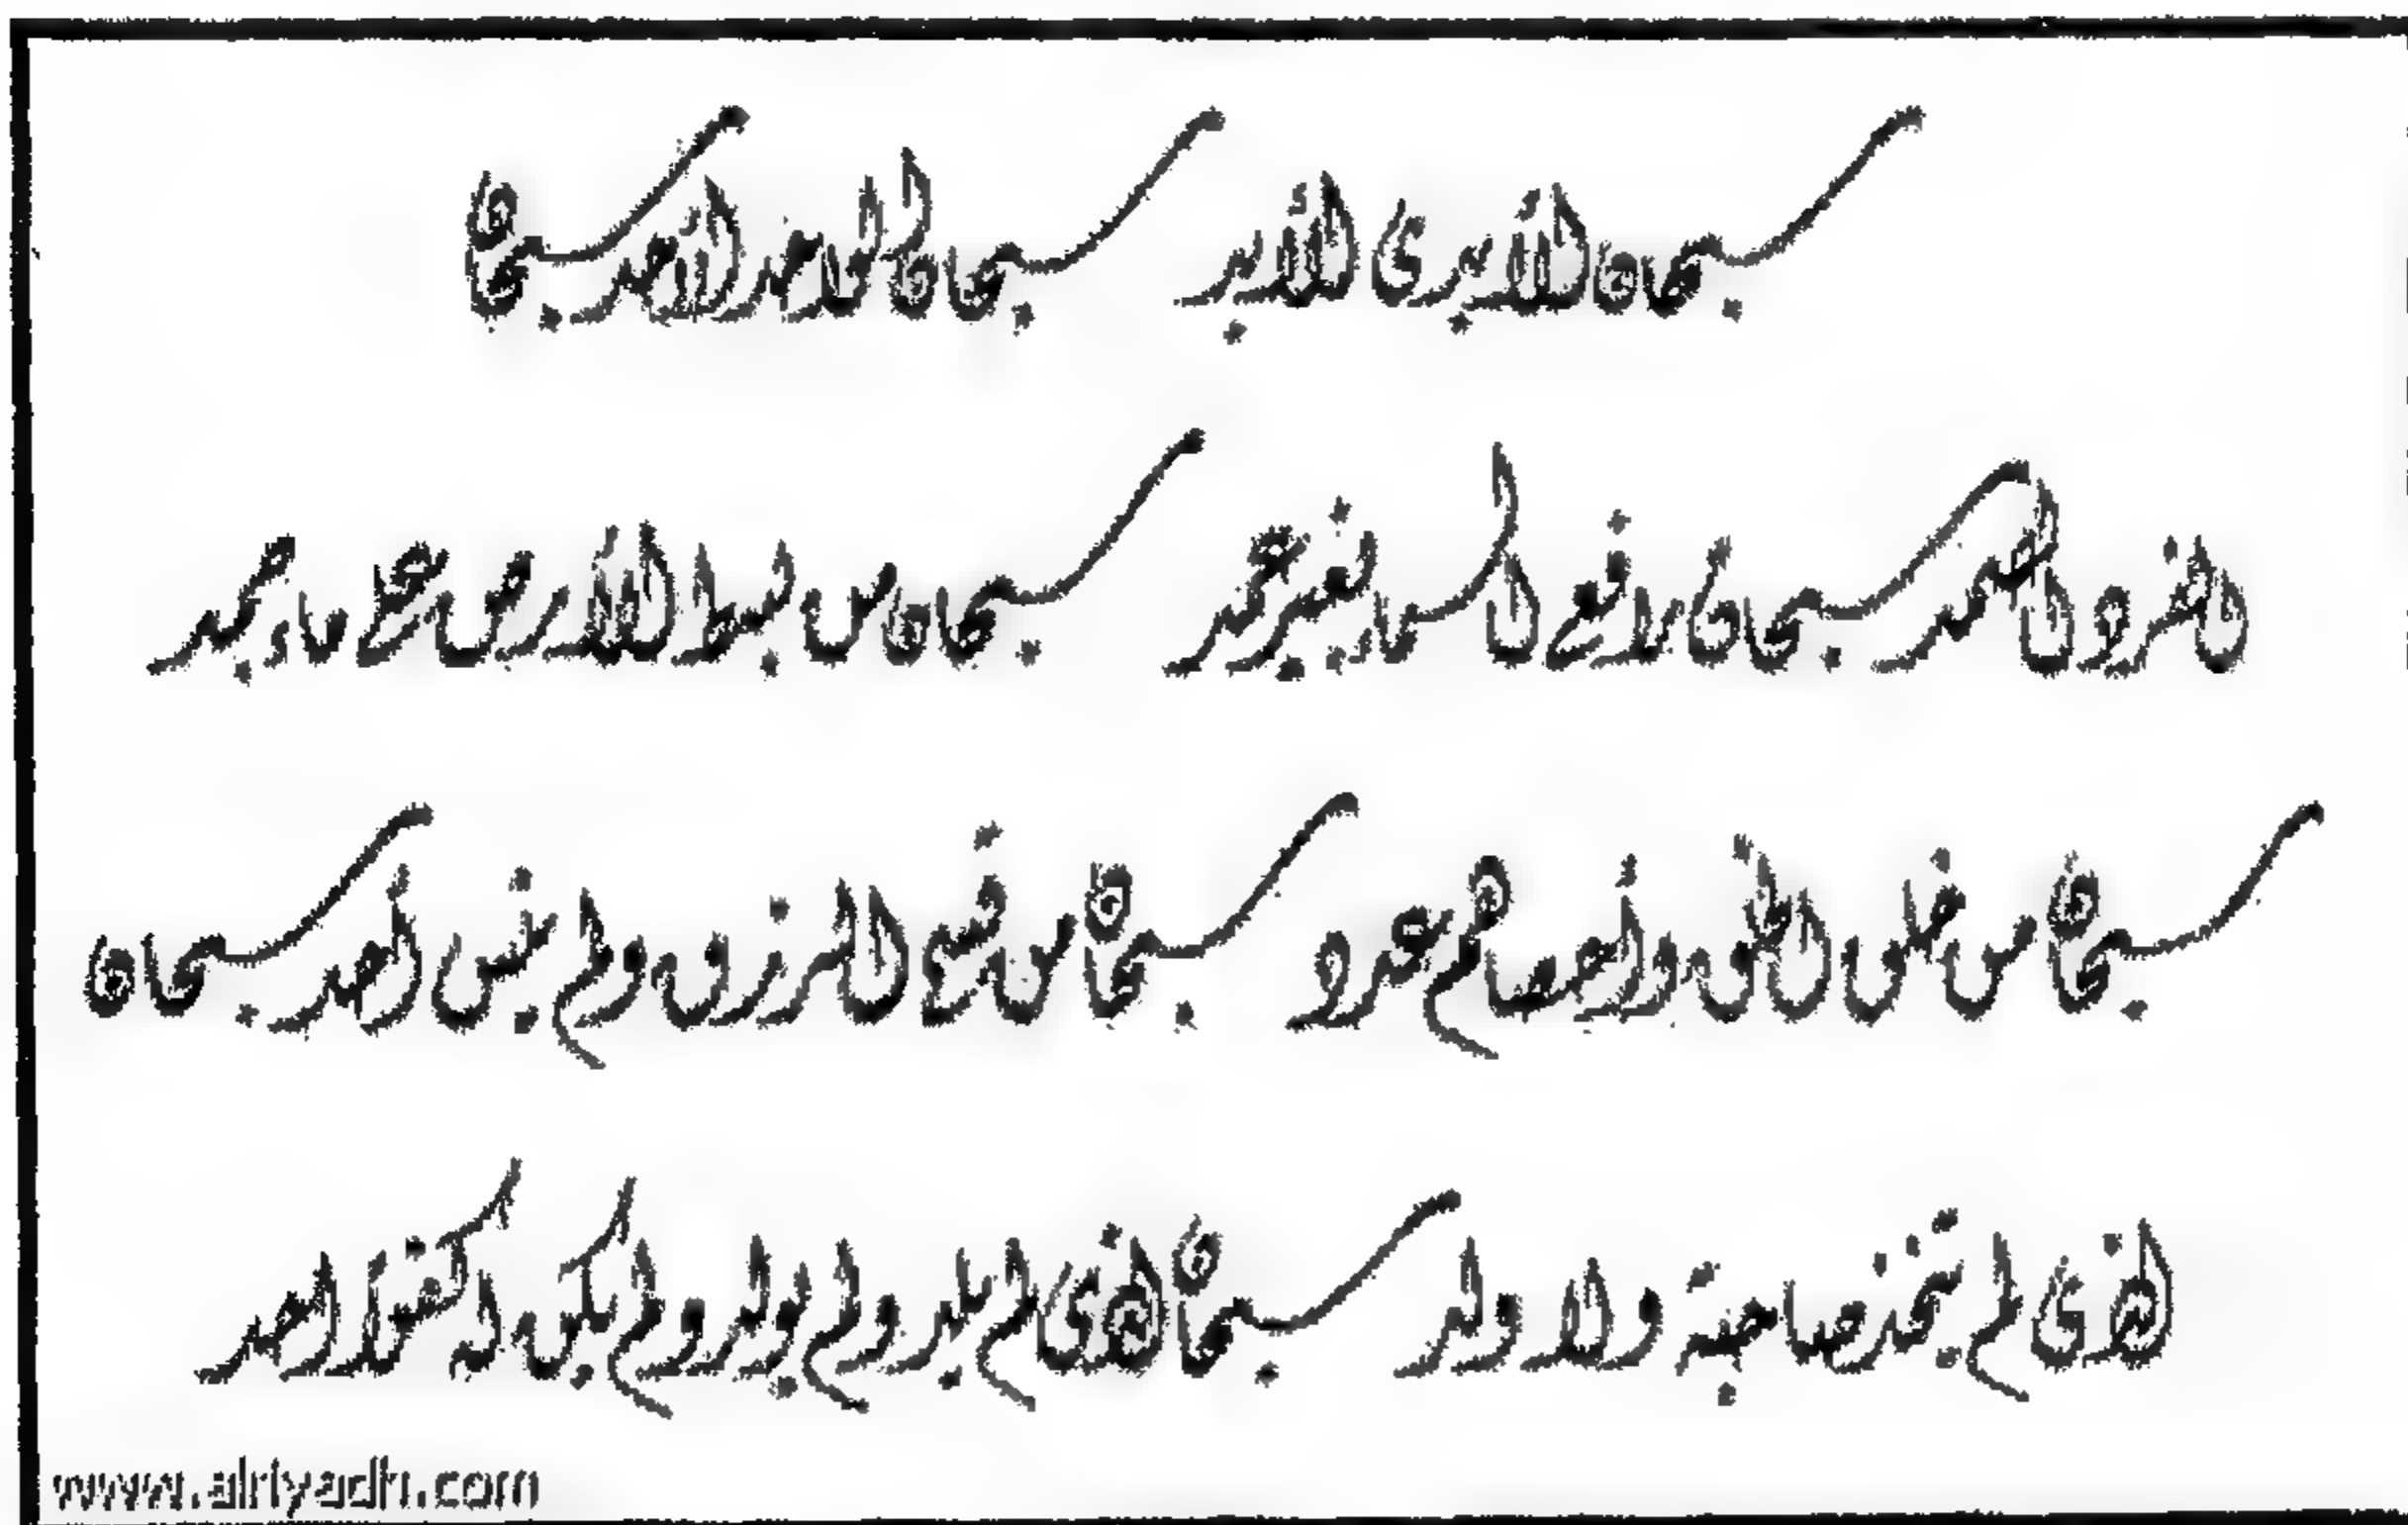 سبحان الأبدي الأبد سبحان الواحد الأحد سبحان
الفرد الصمد سبحان رافع السما بغير عمد سبحان من بسط الأرض على ماء جمد
سبحان من خلق الخلق وأحصاهم عدد سبحان من قسم الرزق ولم ينس أحد سبحان
الذي لم يتخذ صاحبة ولا ولد سبحان الذي لم يلد ولم يولد ولم يكن له كفوًا احد
www.alriyadh.com